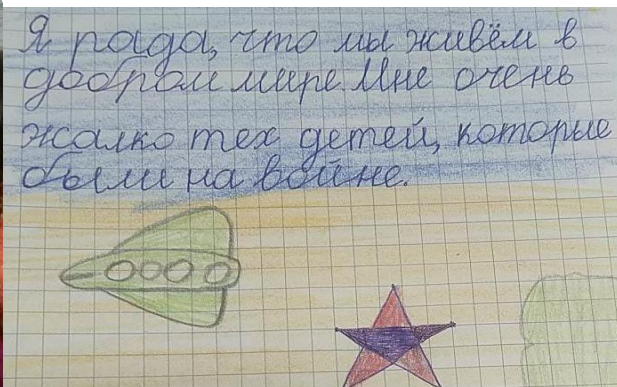 Я рада, что мы живём в
добром мире. Мне очень
жалко тех детей, которые
были на войне.